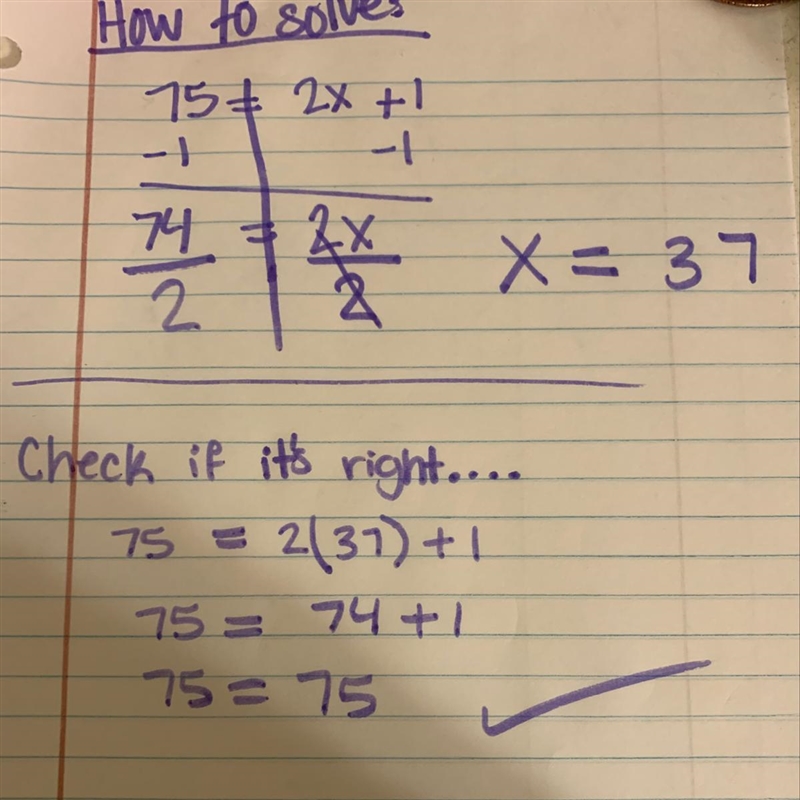 How to solve:
75 = 2x + 1
-1 -1
74 = 2x
2 2
x = 37
Check if it's right....
75 = 2(37) + 1
75 = 74 + 1
75 = 75